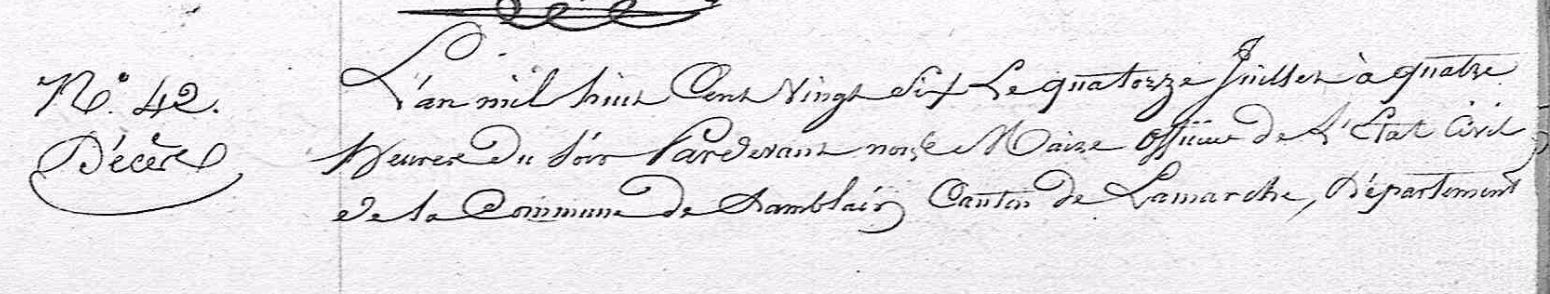 N.° 42.
Décès
L'an mil huit Cent Vingt Six Le quatorze Juillet à quatre
Heures du Soir Pardevant nous Maire Officier de L'Etat Civil
de la Commune de Damblain Canton de Lamarche, Département